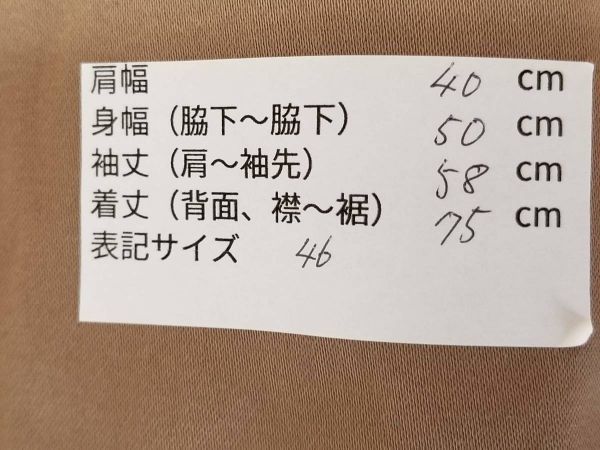 肩幅 40 cm
身幅（脇下～脇下） 50 cm
袖丈（肩～袖先） 58 cm
着丈（背面、襟～裾） 75 cm
表記サイズ 46